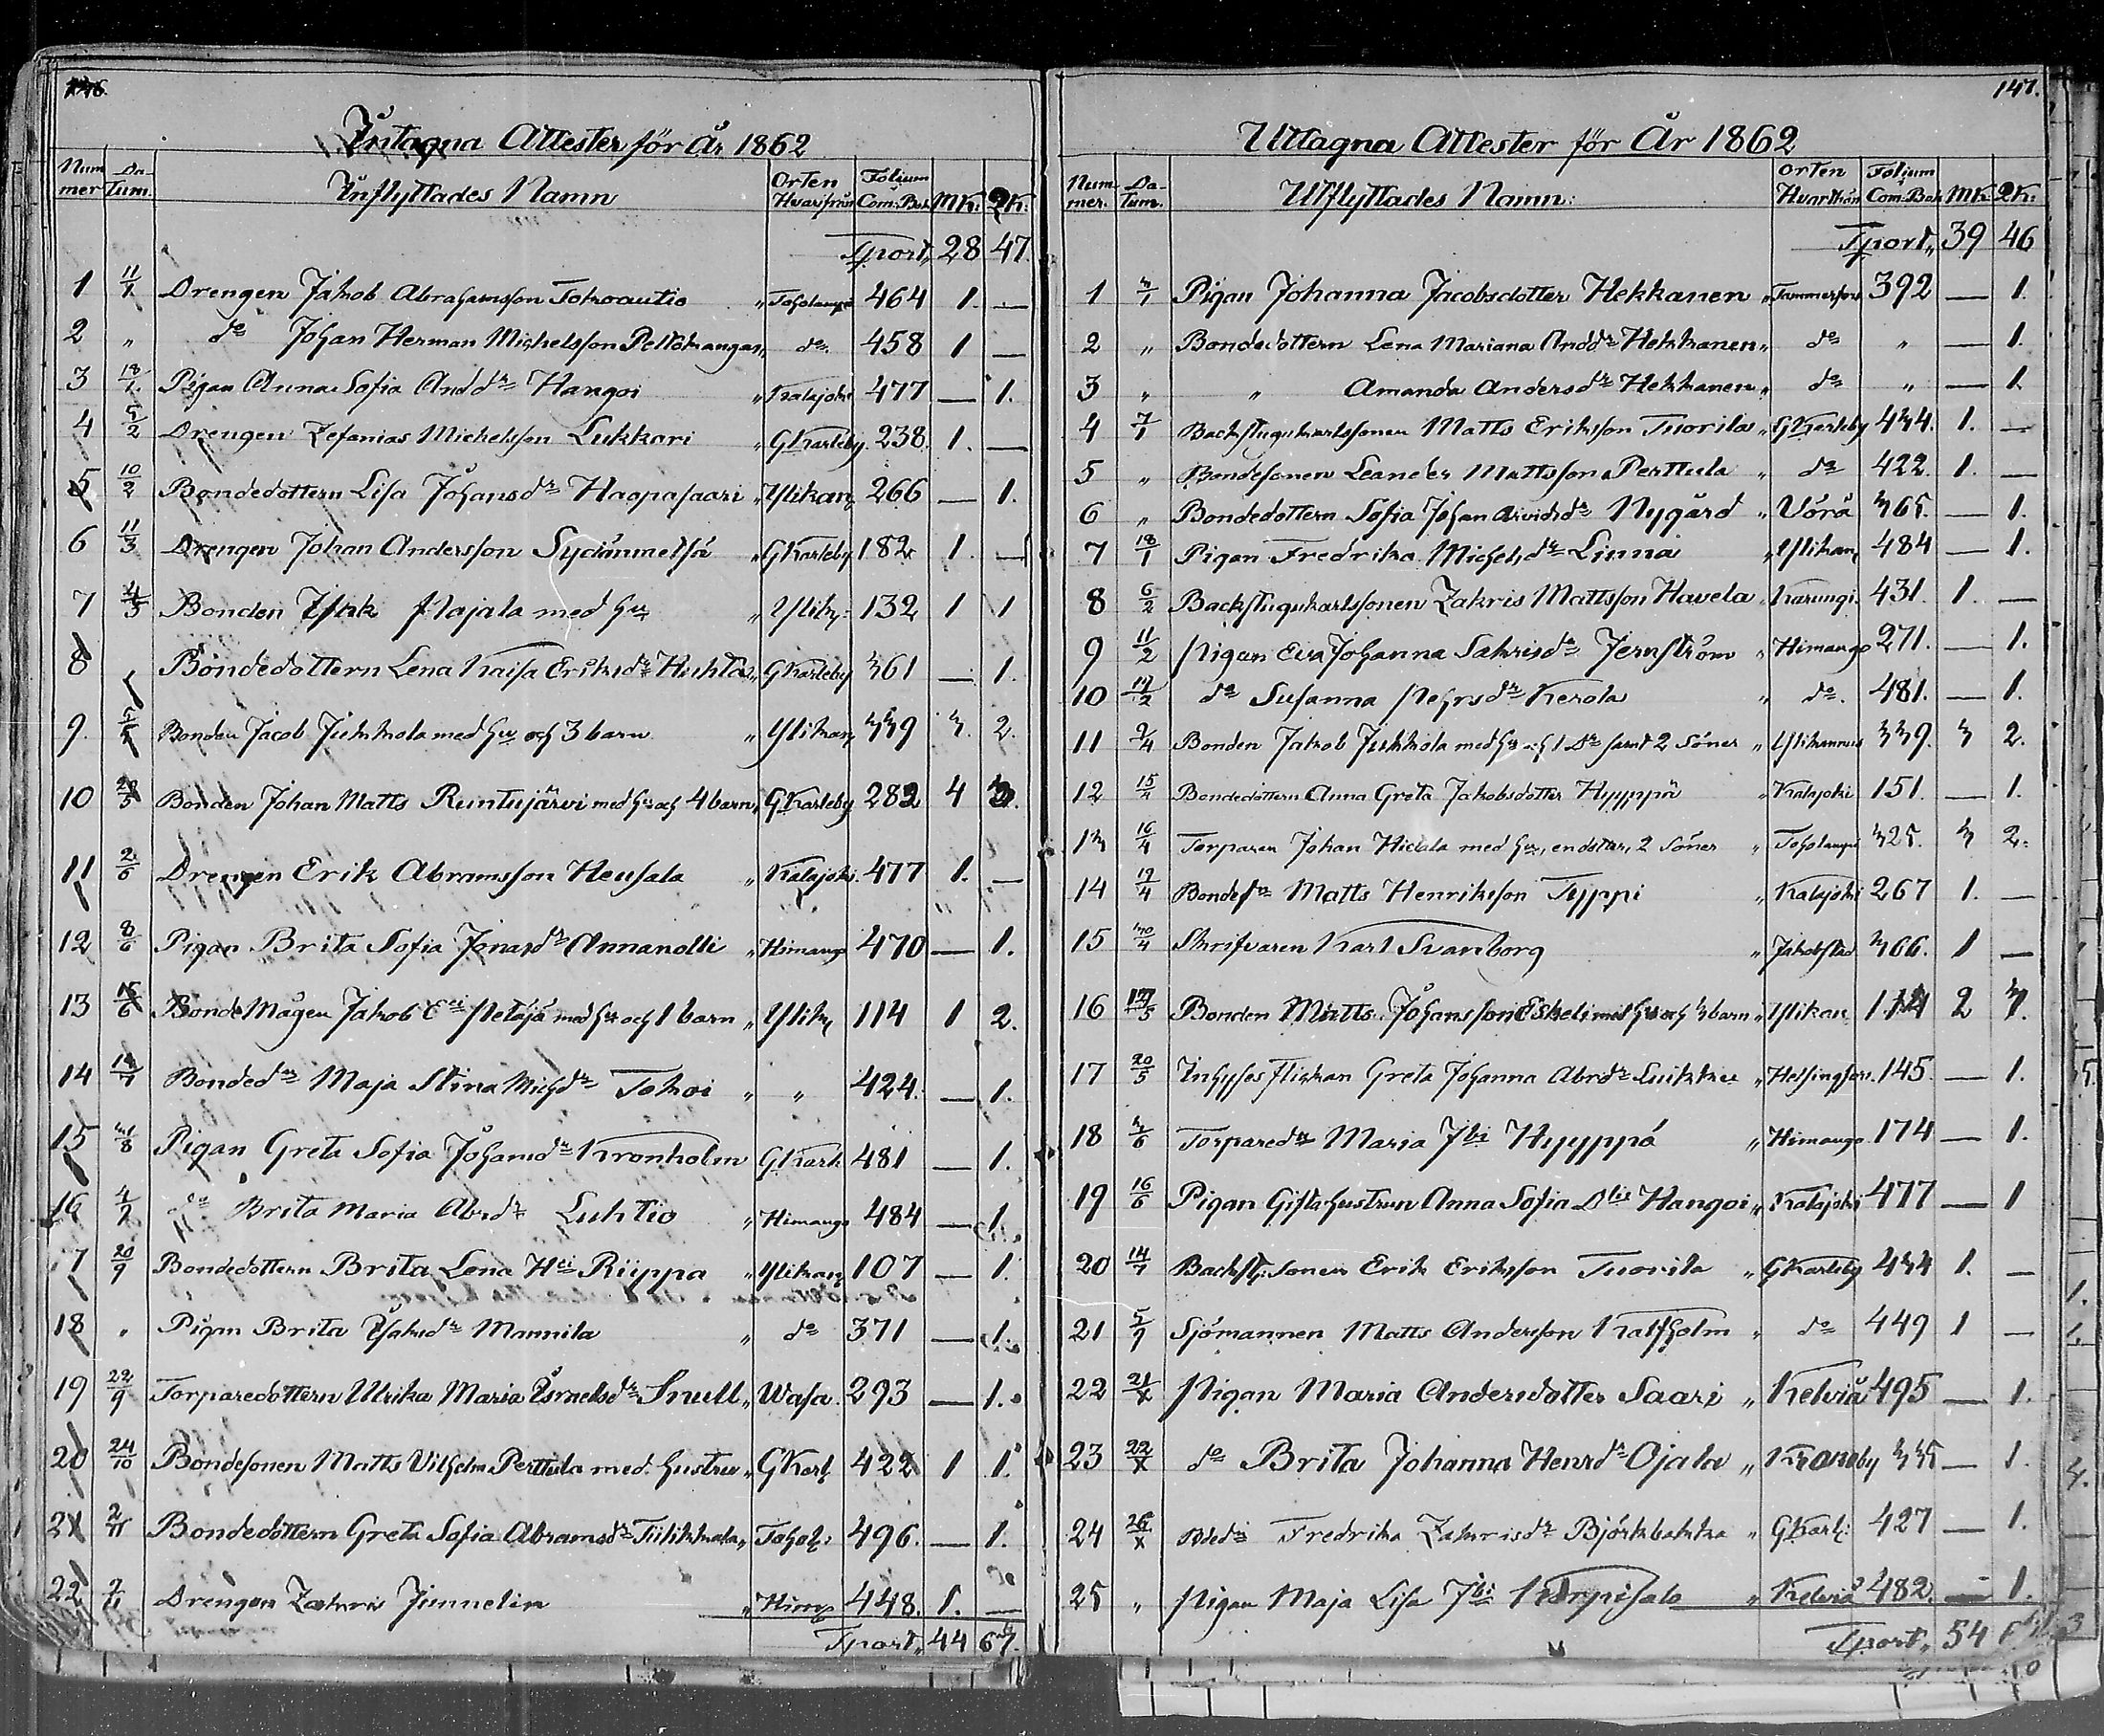 146.
Intagna Attester för År 1862
Num mer | Da- tum. | Inflyttades Namn | Orten Hvarifrån | Folium Com: Bok. | MK: | QK:
Tport,, 28 47.
1 11/1 Drengen Jakob Abrahamsson Tokoautio " Toholampi 464 1. —
2 " do Johan Herman Michelsson Peltokangas, do 458 1 —
3 18/1 Pigan Anna Sofia Anddr Hangoi " Kalajoki 477 — 1.
4 5/2 Drengen Zefanias Michelsson Lukkari " GKarleby. 238. 1. —
5 10/2 Bondedottern Lisa Johansdr Haapasaari " Ylikan, 266 — 1.
6 11/3 Drengen Johan Andersson Sydänmetsä " GKarleby 182 1. —
7 Bonden Isak Majala med hu " Ylik: 132 1 1
8 Bondedottern Lena Kaisa Eriksdr Huhta " GKarleby 361 — 1.
9. Bonden Jacob Junkkola med hu och 3 barn " Ylikan, 339 3. 2.
10 28/5 Bonden Johan Matts Runtujärvi med hu och 4 barn, GKarleby 282 4 3.
11 2/6 Drengen Erik Abramsson Heusala " Kalajoki. 477 1. —
12 8/6 Pigan Brita Sofia Jonasdr Annanolli " Himango 470 — 1.
13 15/6 Bonde Mågen Jakob Eri Petäjä med hu och 1 barn " Ylik, 114 1 2.
14 Bondedr Maja Stina Michdr Tokoi " " 424. — 1.
15 31/8 Pigan Greta Sofia Johansdr Kronholm GKarle 481 — 1.
16 do Brita Maria Abrdr Luhtio " Himango 484 — 1.
17 20/9 Bondedottern Brita Lena Hri Riippa " Ylikan, 107 — 1.
18 " Pigan Brita Isaksdr Mannila " do 371 — 1.
19 22/9 Torparedottern Ulrika Maria Israelsdr Snell " Wasa. 293 — 1.
20 24/10 Bondesonen Matts Vilhelm Perttula med hustru " GKarl, 422 1 1.
21 2/11 Bondedottern Greta Sofia Abramsdr Tiilikkala, Tohol: 496. — 1.
22 Drengen Zakris Junnelin " Himg 448. 1. —
Tport,, 44 67.
147.
Uttagna Attester för År 1862
Num- mer. | Da- tum. | Utflyttades Namn: | Orten Hvarthän | Folium Com: Bok | MK. | QK:
Tport,, 39 46
1 3/1 Pigan Johanna Jacobsdotter Hekkanen " Tammerfors 392 — 1.
2 " Bondedottern Lena Mariana Anddr Hekkanen " do " — 1.
3 " " Amanda Andersdr Hekkanen " do " — 1
4 7/1 Backstugukarlssonen Matts Eriksson Tuorila " GKarleby 434. 1. —
5 " Bondesonen Leander Mattsson Perttula " do 422. 1. —
6 " Bondedottern Sofia Johan Arvidsdr Nygård " Vörå 365. — 1.
7 18/1 Pigan Fredrika Michelsdr Linna " Ylikan, 484 — 1.
8 6/2 Backstugukarlssonen Zakris Mattsson Havela " Karungi. 431. 1. —
9 11/2 Pigan Eva Johanna Sakrisdr Jernström " Himango 271. — 1.
10 17/2 do Susanna Pehrsdr Kerola " do. 481. — 1.
11 9/4 Bonden Jakob Junkkola med hu och 1 Dr samt 2 Söner " Ylikannus 339. 3 2.
12 15/4 Bondedottern Anna Greta Jakobsdotter Hyyppä " Kalajoki 151. — 1.
13 16/4 Torparen Johan Hietala med hu, en dotter, 2 Söner " Toholampi 325. 3 2.
14 19/4 Bondesn Matts Henriksson Typpi " Kalajoki 267 1. —
15 30/4 Skrifvaren Karl Svanborg " Jakobstad 366. 1 —
16 17/5 Bonden Matts Johansson Eskeli med hu och 3 barn " Ylikan 114 2 3.
17 20/5 Inhyses Flickan Greta Johanna Abrdr Luikku " Helsingfors. 145. — 1.
18 3/6 Torparedr Maria Jbi Hyyppä " Himango 174 — 1.
19 16/6 Pigan Gifta hustrun Anna Sofia Hangoi " Kalajoki 477 — 1
20 14/7 Backst: Sonen Erik Eriksson Tuorila " GKarleby 434 1. —
21 5/9 Sjömannen Matts Andersson Kalfholm " do 449 1 —
22 21/X Pigan Maria Andersdotter Saari " Kelviå 495 — 1.
23 22/X do Brita Johanna Henrdr Ojala " Kroneby 335 — 1.
24 26/X Bdedr Fredrika Zakrisdr Björkbakka " GKarl: 427 — 1.
25 " Pigan Maja Lisa Jbi Korpisalo " Kelviå 482. — 1.
Tport,, 54